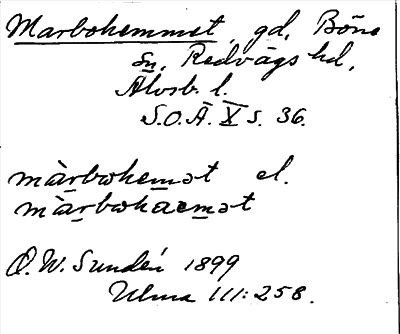 Marbohemmet, gd, Böne
sn, Redvägs hd,
Älvsb. l.
S.O.Ä. X s. 36.
màrbωhemət el.
màrbωhaemət
O. W. Sundén 1899
Ulma 111:258.